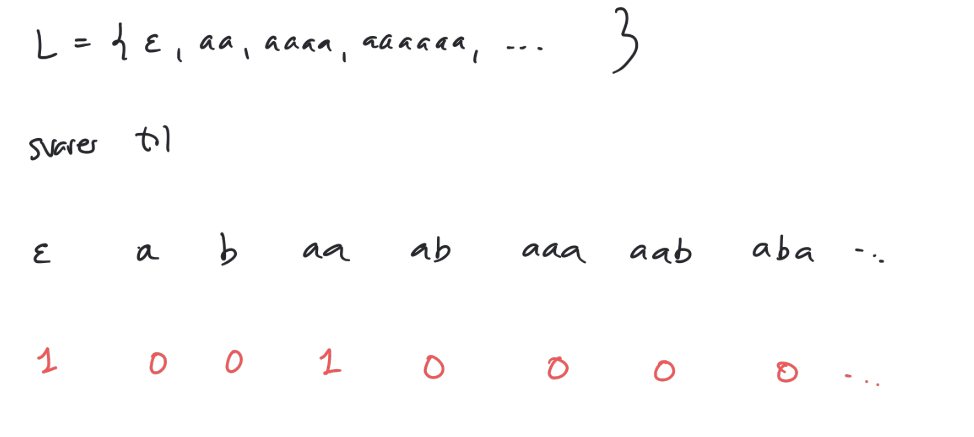 L = { ε, aa, aaaa, aaaaaa, ... }
svarer til
ε a b aa ab aaa aab aba ...
1 0 0 1 0 0 0 0 ...